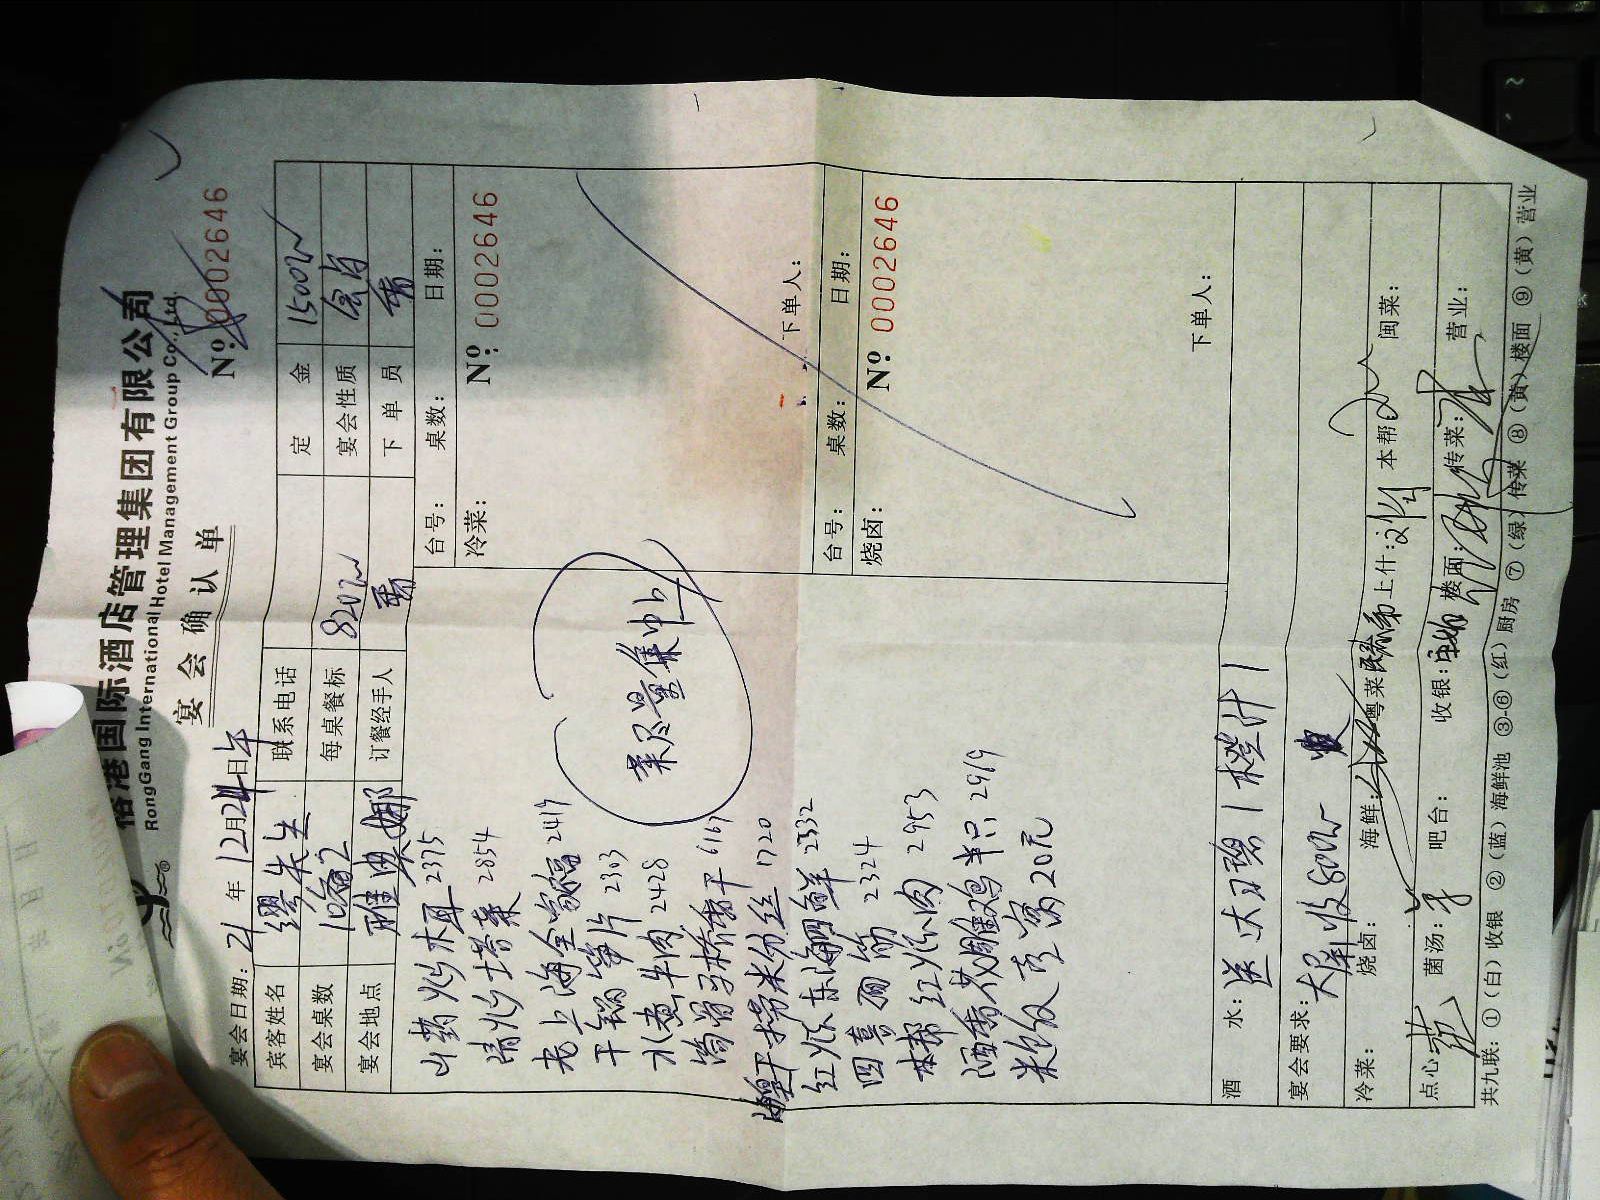 港国际酒店管理集团有限公司
RongGang International Hotel Management Group Co., Ltd.
宴会确认单
Nº: 0002646
宴会日期: 21年12月24日午
宾客姓名 缪先生 联系电话 定金 1500
宴会桌数 每桌餐标 820 宴会性质
宴会地点 雅 订餐经手人 下单员
台号: 桌数: 日期:
冷菜: Nº: 0002646
山药炒木耳 2375
清炒塔菜 2854
老上海全家福 2419
干锅笋片 2303
水煮牛肉 2428
菜尽量集中上
下单人:
台号: 桌数: 日期:
烧卤: Nº 0002646
海鲜干捞米粉丝 1720
红烧东海鮸鲜 2332
四喜面筋 2324
本帮红烧肉 2953
酒香花雕鸡半只 2919
米饭 20元
下单人:
酒水: 送大可碧1橙汁1
宴会要求: 大屏收800
冷菜: 烧卤: 海鲜: 粤菜 上什: 刘 本帮 闽菜:
点心 菌汤: 吧台: 收银: 楼面: 传菜: 营业:
共九联: ①(白)收银 ②(蓝)海鲜池 ③-⑥(红)厨房 ⑦(绿)传菜 ⑧(黄)楼面 ⑨(黄)营业